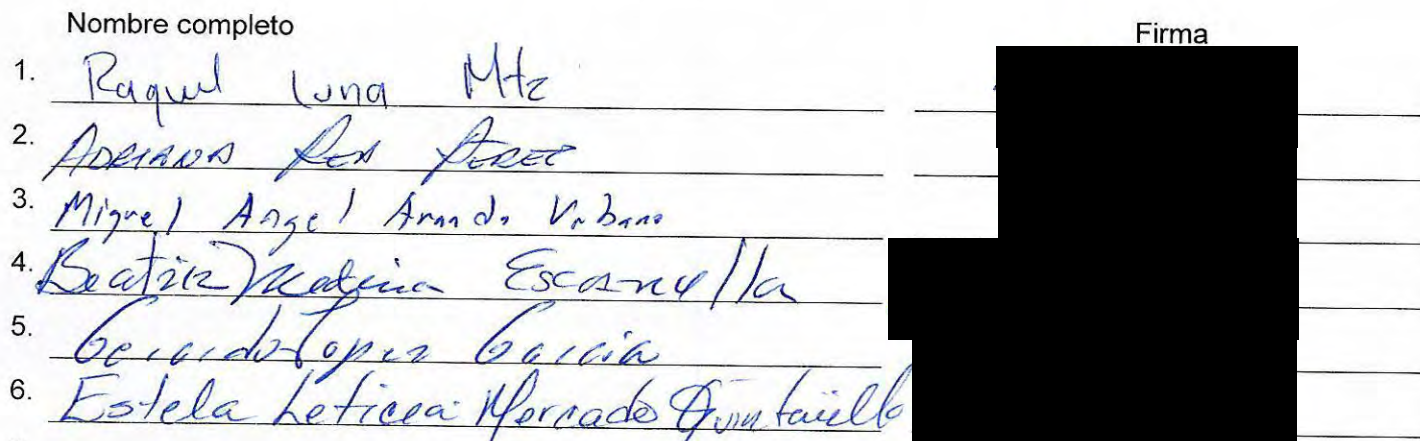 Nombre completo Firma
1. Raquel Luna Mtz
2. ADRIANA REA PEREZ
3. Miguel Angel Aranda Urbano
4. Beatriz Medina
5. Gerardo Lopez Garcia
6. Estela Leticia Mercado